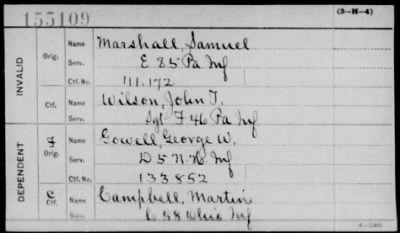 155109
(3-H-4)
INVALID
Orig. Name Marshall, Samuel
Serv. E 85 Pa Inf
Ctf. No. 111.172
Ctf. Name Wilson, John T.
Serv. Sgt F 46 Pa Inf
DEPENDENT
Orig. Name Gowell, George W.
Serv. D 5 N.H. Inf
Ctf. No. 133852
C Ctf. Name Campbell, Martin
Serv. C 58 Ohio Inf